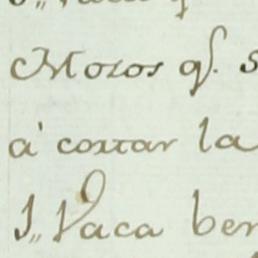 Mozos q.ᵉ s
á cortar la
1,, Vaca ber